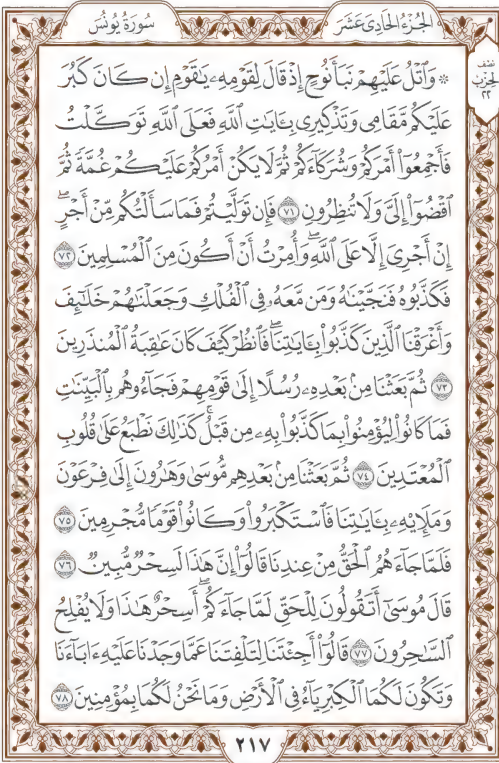 سُورَةُ يُونُسَ
الجُزْءُ الحَادِى عَشَرَ
نصف
الحزب
٢٢
۞ وَٱتْلُ عَلَيْهِمْ نَبَأَ نُوحٍ إِذْ قَالَ لِقَوْمِهِۦ يَٰقَوْمِ إِن كَانَ كَبُرَ
عَلَيْكُم مَّقَامِى وَتَذْكِيرِى بِـَٔايَٰتِ ٱللَّهِ فَعَلَى ٱللَّهِ تَوَكَّلْتُ
فَأَجْمِعُوٓا۟ أَمْرَكُمْ وَشُرَكَآءَكُمْ ثُمَّ لَا يَكُنْ أَمْرُكُمْ عَلَيْكُمْ غُمَّةً ثُمَّ
ٱقْضُوٓا۟ إِلَىَّ وَلَا تُنظِرُونِ ٧١ فَإِن تَوَلَّيْتُمْ فَمَا سَأَلْتُكُم مِّنْ أَجْرٍ ۖ
إِنْ أَجْرِىَ إِلَّا عَلَى ٱللَّهِ ۖ وَأُمِرْتُ أَنْ أَكُونَ مِنَ ٱلْمُسْلِمِينَ ٧٢
فَكَذَّبُوهُ فَنَجَّيْنَٰهُ وَمَن مَّعَهُۥ فِى ٱلْفُلْكِ وَجَعَلْنَٰهُمْ خَلَٰٓئِفَ
وَأَغْرَقْنَا ٱلَّذِينَ كَذَّبُوا۟ بِـَٔايَٰتِنَا ۖ فَٱنظُرْ كَيْفَ كَانَ عَٰقِبَةُ ٱلْمُنذَرِينَ
٧٣ ثُمَّ بَعَثْنَا مِنۢ بَعْدِهِۦ رُسُلًا إِلَىٰ قَوْمِهِمْ فَجَآءُوهُم بِٱلْبَيِّنَٰتِ
فَمَا كَانُوا۟ لِيُؤْمِنُوا۟ بِمَا كَذَّبُوا۟ بِهِۦ مِن قَبْلُ ۚ كَذَٰلِكَ نَطْبَعُ عَلَىٰ قُلُوبِ
ٱلْمُعْتَدِينَ ٧٤ ثُمَّ بَعَثْنَا مِنۢ بَعْدِهِم مُّوسَىٰ وَهَٰرُونَ إِلَىٰ فِرْعَوْنَ
وَمَلَإِي۟هِۦ بِـَٔايَٰتِنَا فَٱسْتَكْبَرُوا۟ وَكَانُوا۟ قَوْمًا مُّجْرِمِينَ ٧٥
فَلَمَّا جَآءَهُمُ ٱلْحَقُّ مِنْ عِندِنَا قَالُوٓا۟ إِنَّ هَٰذَا لَسِحْرٌ مُّبِينٌ ٧٦
قَالَ مُوسَىٰٓ أَتَقُولُونَ لِلْحَقِّ لَمَّا جَآءَكُمْ ۖ أَسِحْرٌ هَٰذَا وَلَا يُفْلِحُ
ٱلسَّٰحِرُونَ ٧٧ قَالُوٓا۟ أَجِئْتَنَا لِتَلْفِتَنَا عَمَّا وَجَدْنَا عَلَيْهِ ءَابَآءَنَا
وَتَكُونَ لَكُمَا ٱلْكِبْرِيَآءُ فِى ٱلْأَرْضِ وَمَا نَحْنُ لَكُمَا بِمُؤْمِنِينَ ٧٨
٢١٧